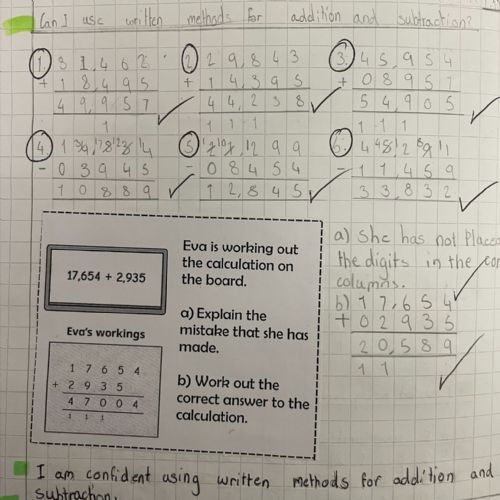 Can I use written methods for addition and subtraction?
1. 3 1,4 6 2 2. 2 9,8 4 3 3. 4 5,9 5 4
+ 1 8,4 9 5 + 1 4,3 9 5 + 0 8 9 5 1
4 9,9 5 7 4 4,2 3 8 5 4,9 0 5
1 1 1 1 1 1 1
4. 5. 6.
- 0 3 9 4 5 - 0 8 4 5 4 - 1 1,4 5 9
1 0 8 8 9 1 2,8 4 5 3 3,8 3 2
17,654 + 2,935
Eva's workings
1 7 6 5 4
+ 2 9 3 5
4 7 0 0 4
1 1 1
Eva is working out
the calculation on
the board.
a) Explain the
mistake that she has
made.
b) Work out the
correct answer to the
calculation.
a) She has not placed
the digits in the
columns.
b) 1 7,6 5 4
+ 0 2 9 3 5
2 0,5 8 9
1 1
I am confident using written methods for addition and
subtraction.